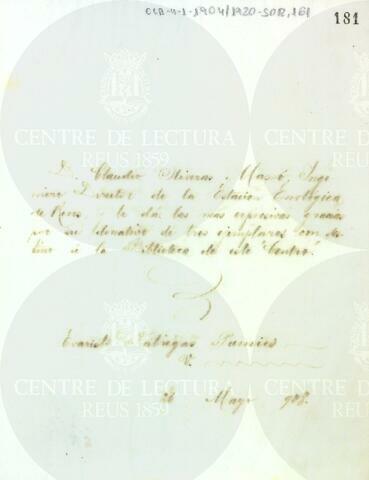 CCR-4-1-1904/1920-SOR, 161
181
CENTRE DE LECTURA
REUS 1859
D. Claudio Oliveras y Massó, Inge
niero Director de la Estación Enológica
de Reus, y le dá las más expresivas gracias
por su donativo de tres ejemplares con des
tino á la Biblioteca de este "Centro".
Evaristo Fábregas Pamies
V.
26 Mayo 908.
CENTRE DE LECTURA
REUS 1859